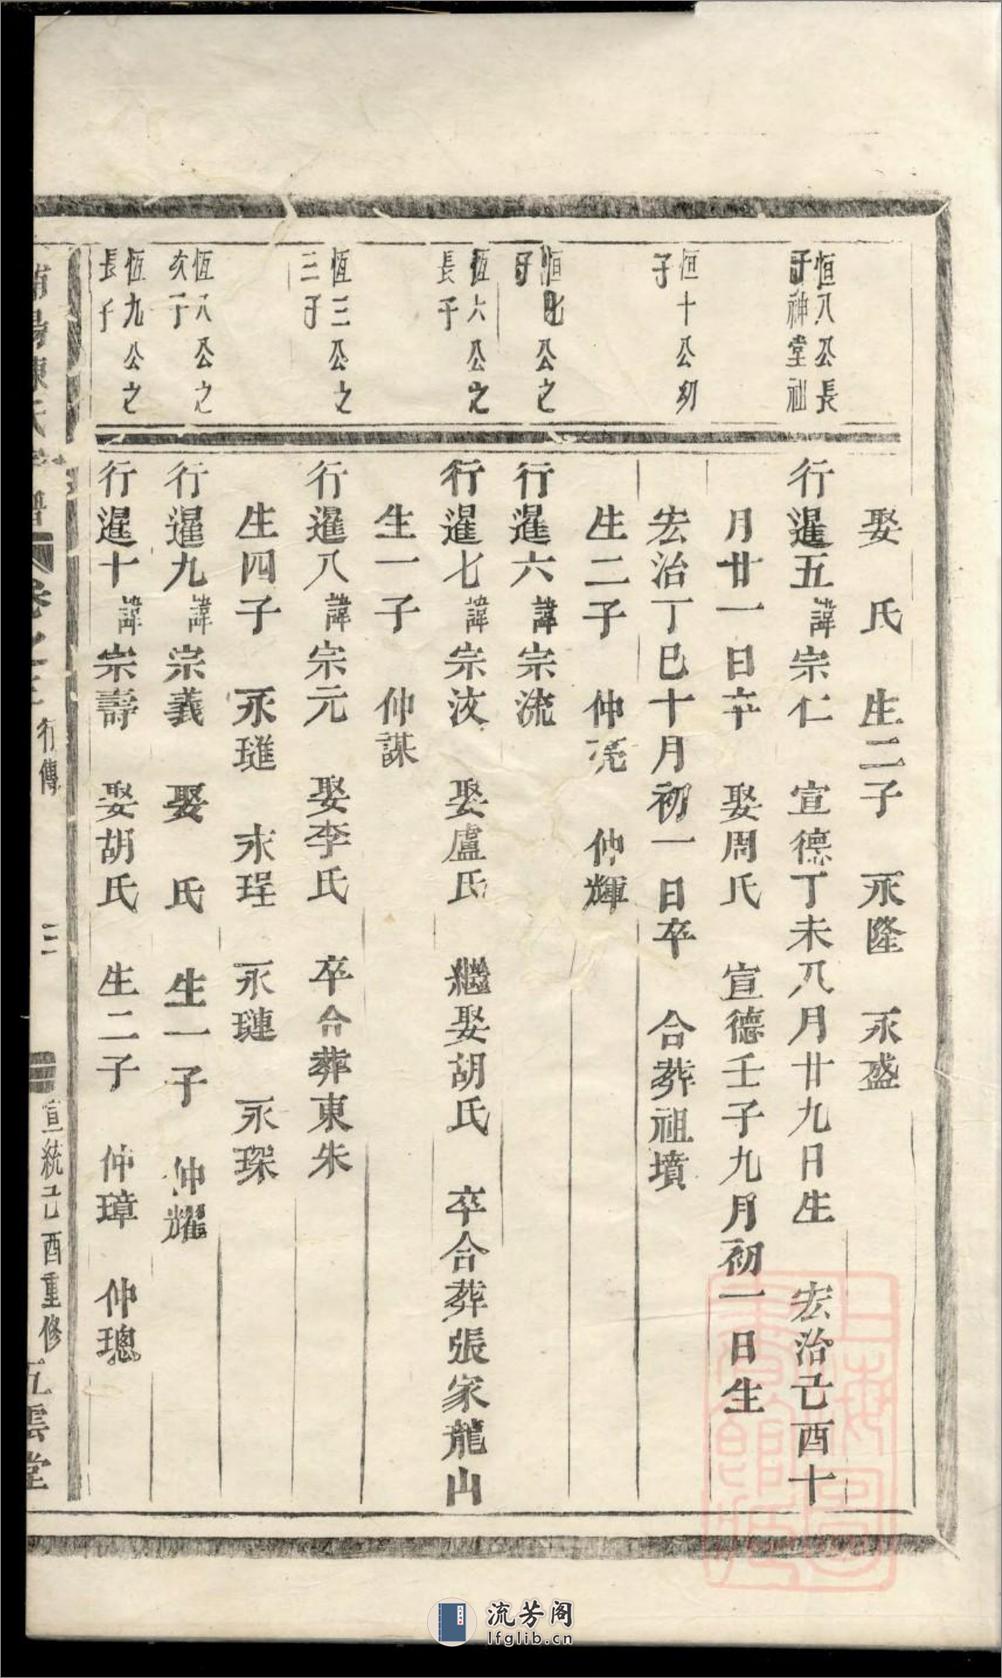 娶　氏　生二子　永隆　永盛
恒八公長
子神堂祖
行暹五諱宗仁　宣德丁未八月廿九日生　宏治己酉十
月廿一日卒　娶周氏　宣德壬子九月初一日生
恒十公幼
子
宏治丁巳十月初一日卒　合葬祖墳
生二子　仲亮　仲輝
恒七公之
子
行暹六諱宗流
恆六公之
長子
行暹七諱宗波　娶盧氏　繼娶胡氏　卒合葬張家龍山
生一子　仲謀
恆三公之
三子
行暹八諱宗元　娶李氏　卒合葬東朱
生四子　永璡　永珵　永璉　永琛
恆八公之
次子
行暹九諱宗義　娶　氏　生一子　仲耀
恆九公之
長子
行暹十諱宗壽　娶胡氏　生二子　仲璋　仲璁
行傳　三　宣統己酉重修　五雲堂
流芳阁
lfglib.cn